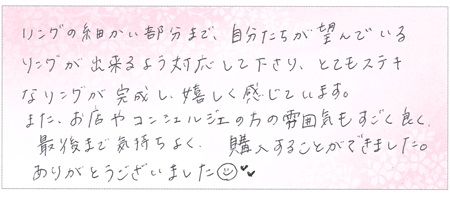 リングの細かい部分まで、自分たちが望んでいる
リングが出来るよう対応して下さり、とてもステキ
なリングが完成し、嬉しく感じています。
また、お店やコンシェルジェの方の雰囲気もすごく良く、
最後まで気持ちよく、購入することができました。
ありがとうございました☺♥♥